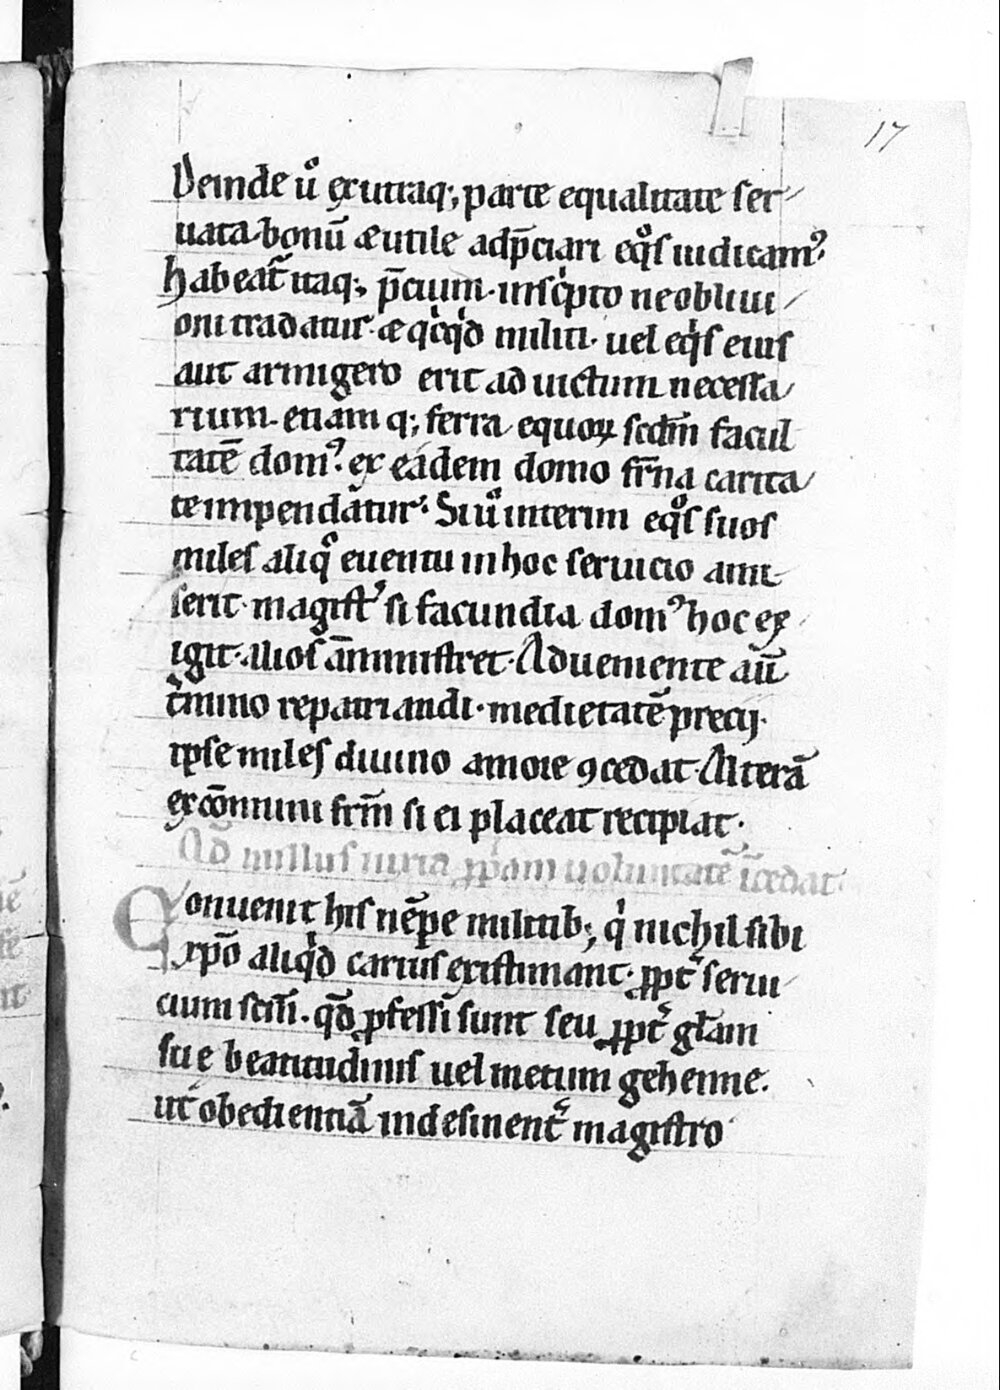 17
Deinde ũ ex utraq; parte equalitate ser
uata bonũ & utile adp̃ciari eq̊s iudicam᾽
habeat̃ itaq; p̃cium inscͥpto ne obliui
oni tradatur & qͥcqͥd militi uel eqͥs eius
aut armigero erit ad uictum necessa
rium etiam q; ferra equoꝝ scdm̃ facul
tatẽ dom᾽ ex eadem domo fr̃na carita
te impendãtur. Si ũ interim eq̊s suos
miles aliq̊ euentu in hoc seruicio ami
serit magist̃ si facundia dom᾽ hoc ex
igit alios ãmministret. Adueniente aũ
t̃mino repatriandi medietatẽ precij
ipse miles diuino amore ꝯcedat Alterã
ex cõmuni frm̃ si ei placeat recipiat.
Qd̃ nullus iuxta ꝓp̃am uoluntatẽ ĩcedat
Conuenit his nẽpe militib; qͥ nichil sibi
xpõ aliqͥd carius existimant ꝓpt̃ serui
cium scm̃. qd̃ ꝓfessi sunt seu ꝓpt̃ glam̃
sũe beatitudinis uel metum gehenne.
ut obedientiã indesinent̃ magistro